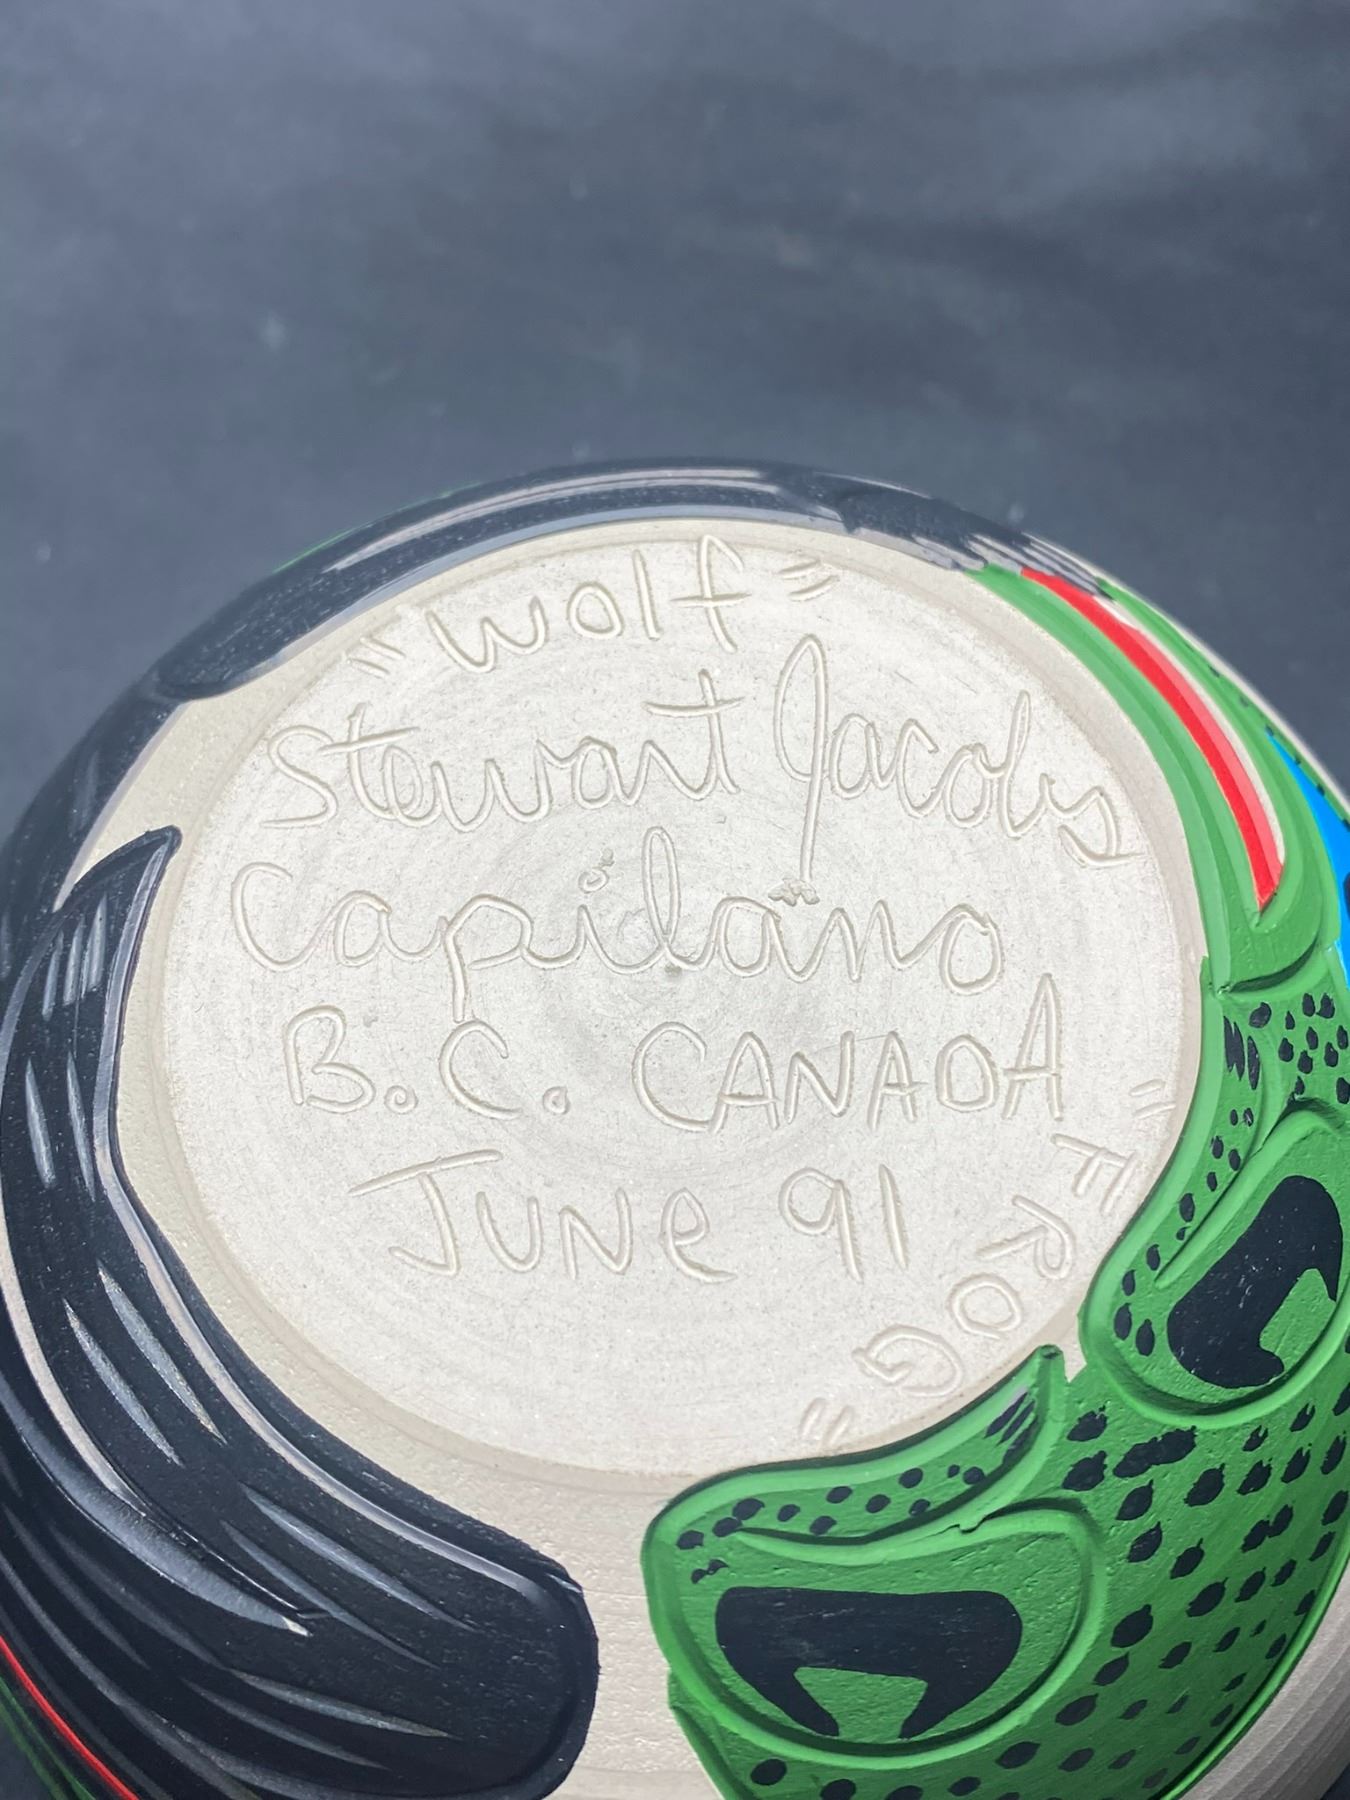 "Wolf"
Stewart Jacobs
Capilano
B.C. CANADA
JUNe 91
"FROG"